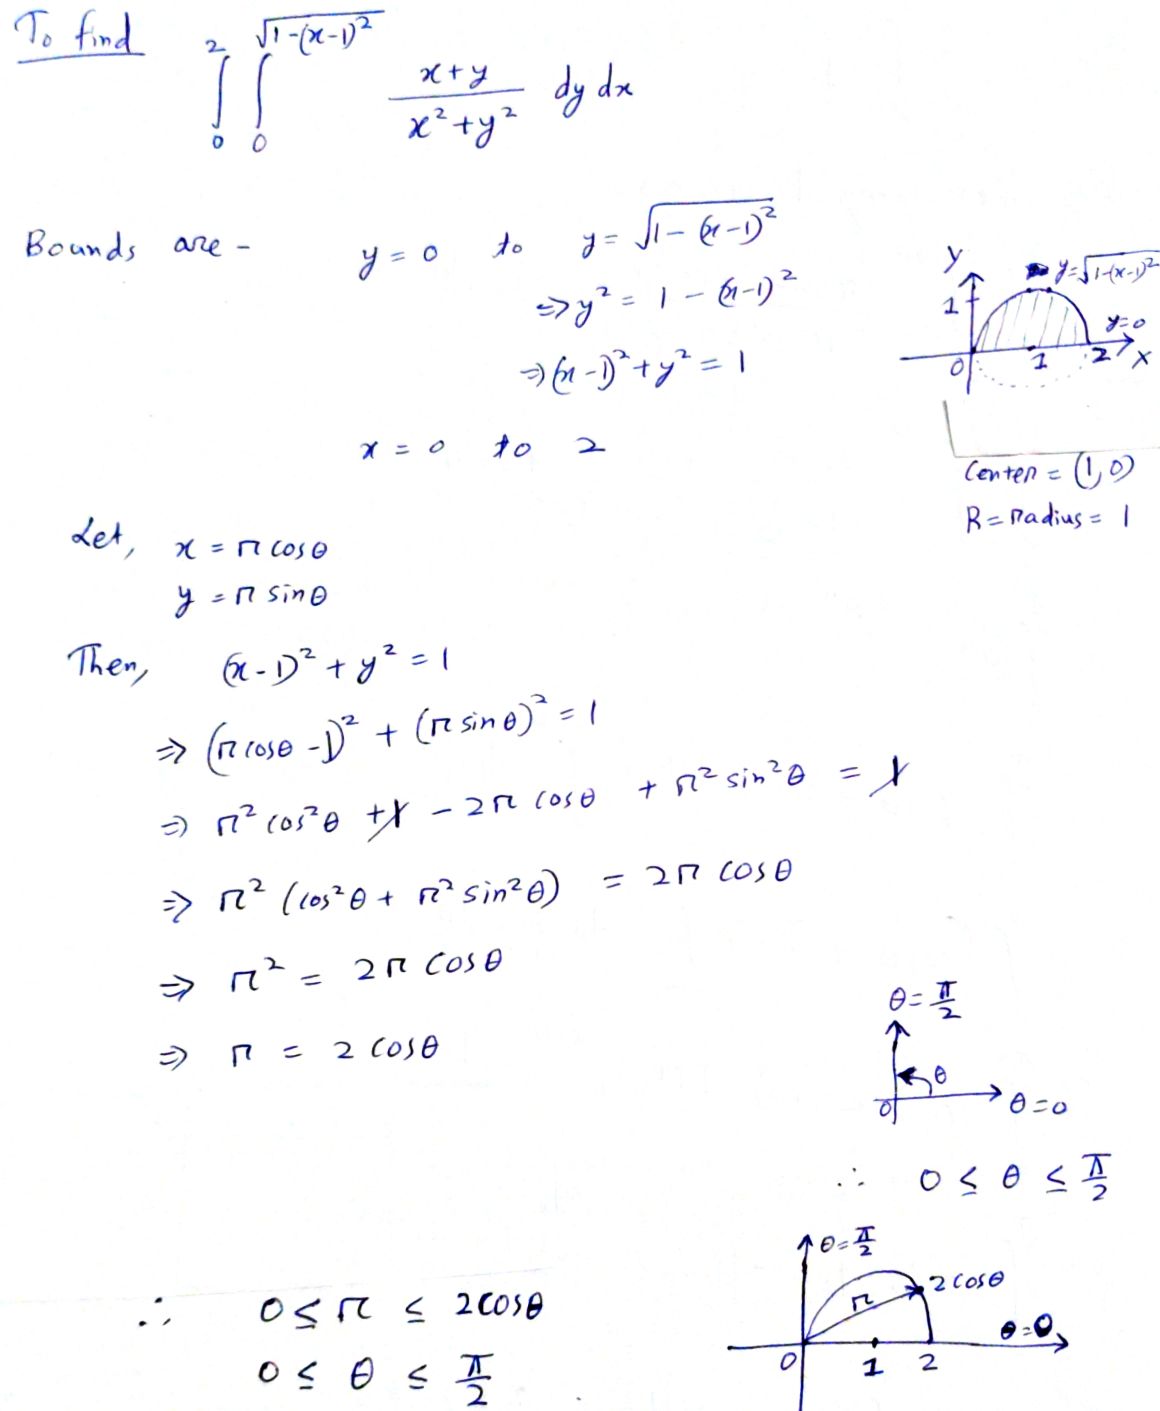 To find ∫₀² ∫₀^√(1-(x-1)²) (x+y)/(x²+y²) dy dx
Bounds are - y = 0 to y = √(1-(x-1)²)
⇒ y² = 1 - (x-1)²
⇒ (x-1)² + y² = 1
x = 0 to 2
Y
y=√(1-(x-1)²)
1
y=0
0 1 2 X
Center = (1,0)
R = radius = 1
Let, x = r cosθ
y = r sinθ
Then, (x-1)² + y² = 1
⇒ (r cosθ - 1)² + (r sinθ)² = 1
⇒ r² cos²θ + 1 - 2r cosθ + r² sin²θ = 1
⇒ r² (cos²θ + r² sin²θ) = 2r cosθ
⇒ r² = 2r cosθ
⇒ r = 2 cosθ
θ = π/2
θ
0 θ=0
∴ 0 ≤ θ ≤ π/2
θ=π/2
2cosθ
r
θ=0
0 1 2
∴ 0 ≤ r ≤ 2cosθ
0 ≤ θ ≤ π/2